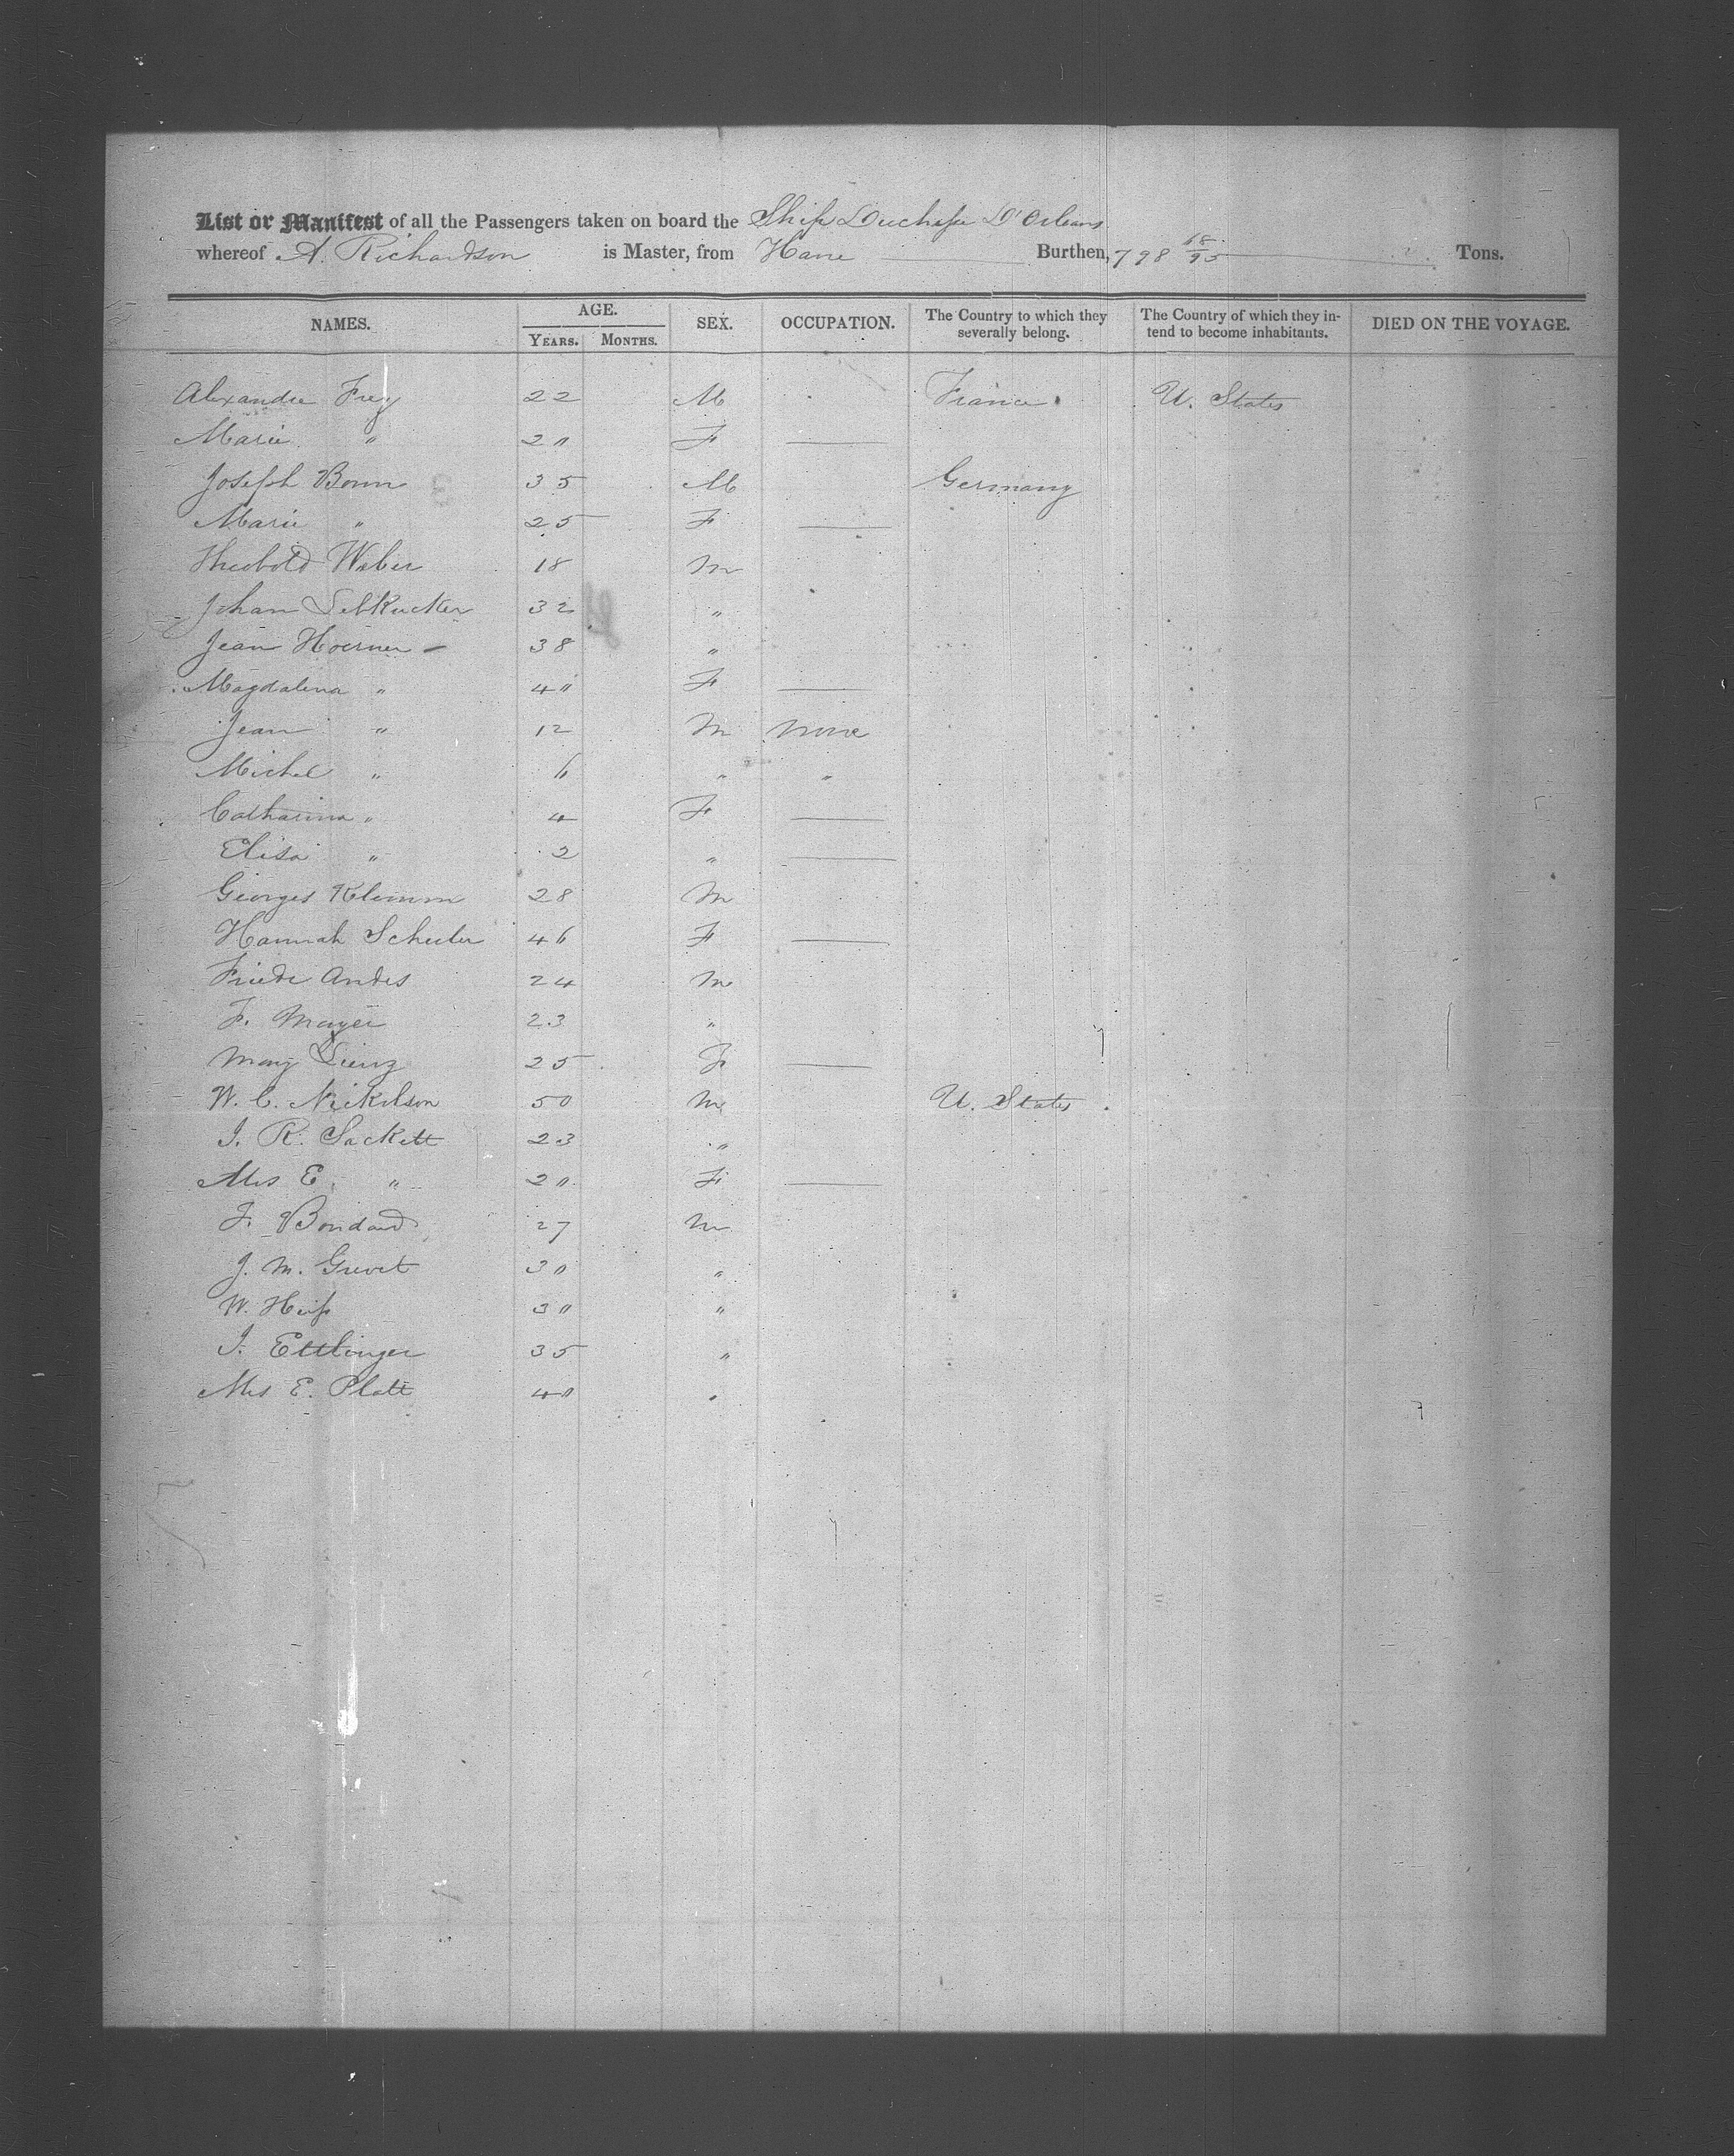 List or Manifest of all the Passengers taken on board the Ship Duchesse D'Orleans
whereof A. Richardson is Master, from Havre Burthen, 798 68/95 Tons.
NAMES. AGE. YEARS. MONTHS. SEX. OCCUPATION. The Country to which they severally belong. The Country of which they intend to become inhabitants. DIED ON THE VOYAGE.
Alexandre Frey 22 M France U. States
Marie " 20 F
Joseph Bonn 35 M Germany
Marie " 25 F
Theobold Weber 18 M
Johan Lebkucker 32 "
Jean Hoerner 38 "
Magdalena " 40 F
Jean " 12 M None
Michel " 6 " "
Catharina " 4 F
Elisa " 2 "
Georges Klemm 28 M
Hannah Scheeler 46 F
Friedr Andes 24 M
F. Mayer 23 "
Mary Lienz 25 F
W. C. Nickelson 50 M U. States
J. R. Sackett 23 "
Mrs E. " 20 F
F. Bondard 27 M
J. M. Grevet 30 "
W. Heiss 30 "
I. Ettlinger 35 "
Mrs E. Platt 40 "